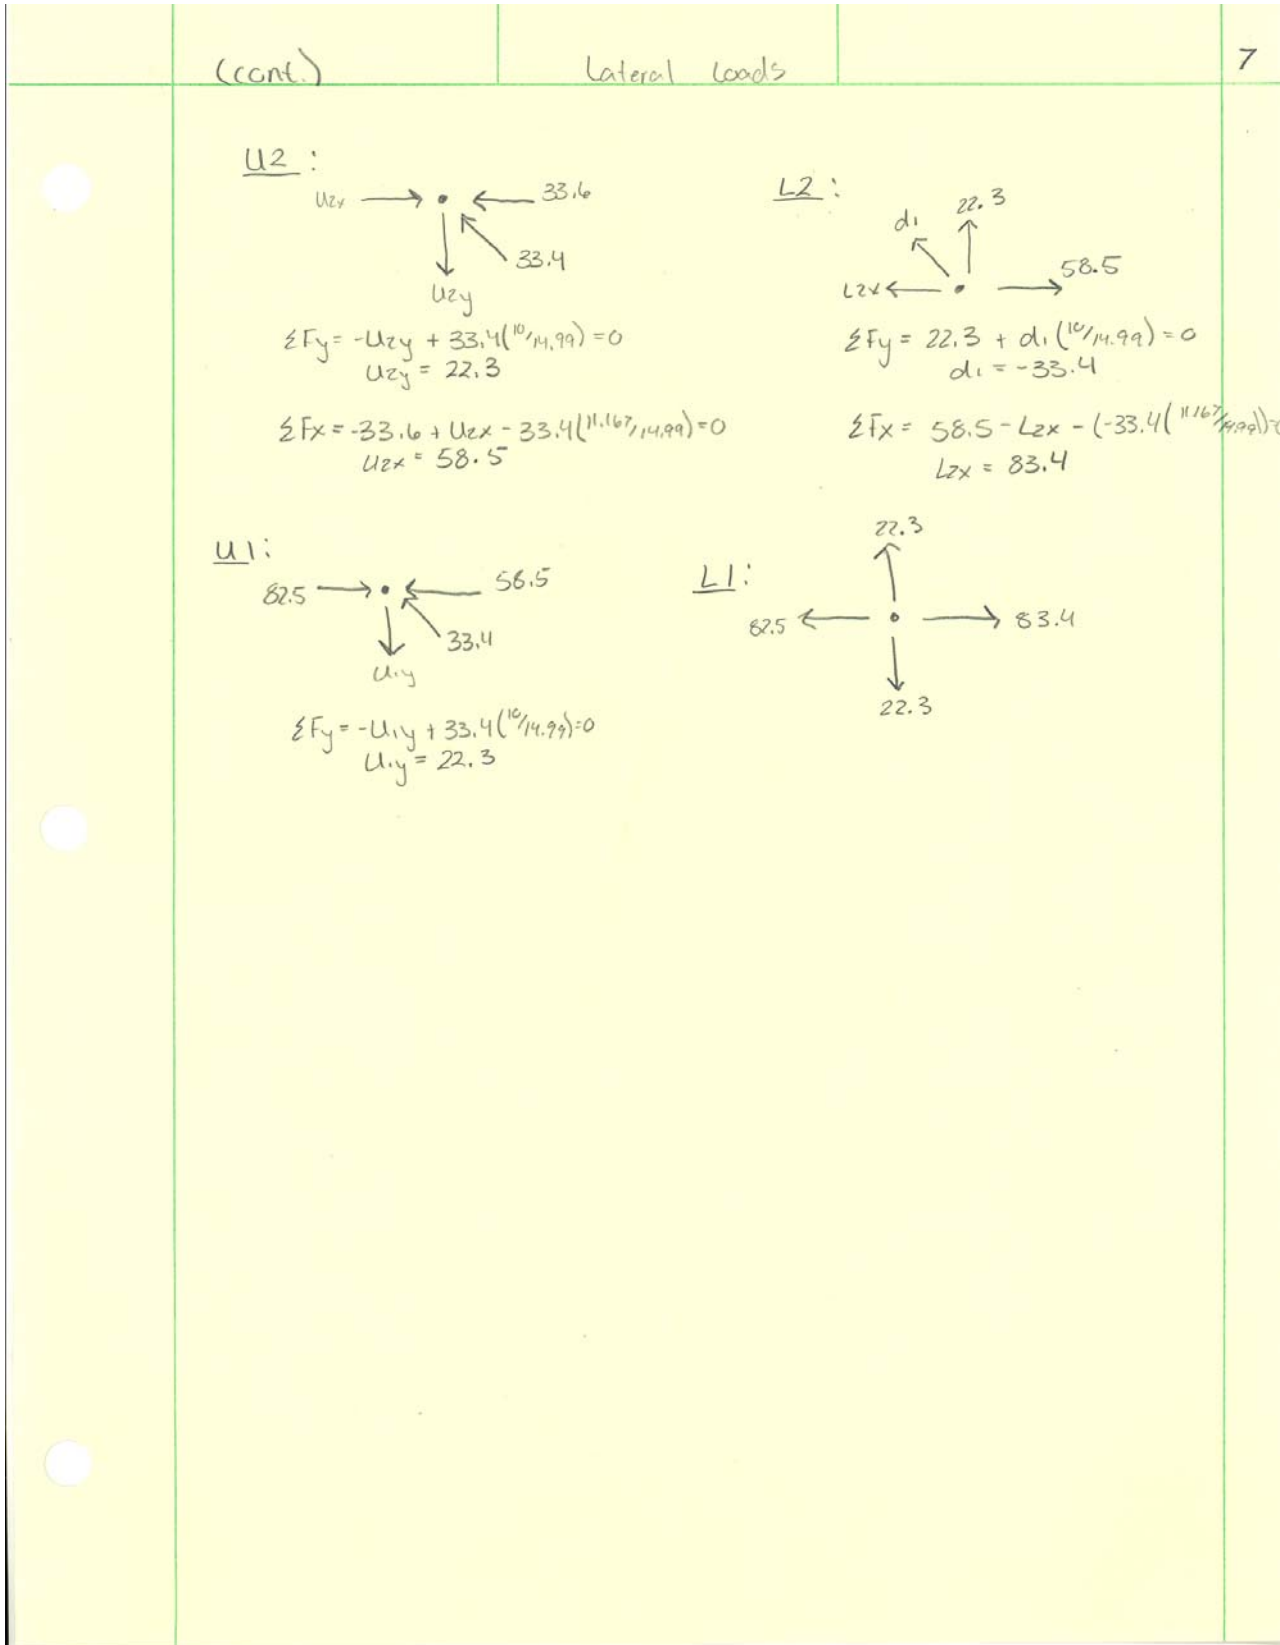 (cont.) Lateral Loads 7
U2:
U2x 33.6
33.4
U2y
ΣFy = -U2y + 33.4(10/14.99) = 0
U2y = 22.3
ΣFx = -33.6 + U2x - 33.4(11.167/14.99) = 0
U2x = 58.5
L2:
d1 22.3
L2x 58.5
ΣFy = 22.3 + d1(10/14.99) = 0
d1 = -33.4
ΣFx = 58.5 - L2x - (-33.4(11.167/14.99))=0
L2x = 83.4
U1:
82.5 58.5
33.4
U1y
ΣFy = -U1y + 33.4(10/14.99)=0
U1y = 22.3
L1:
22.3
82.5 83.4
22.3